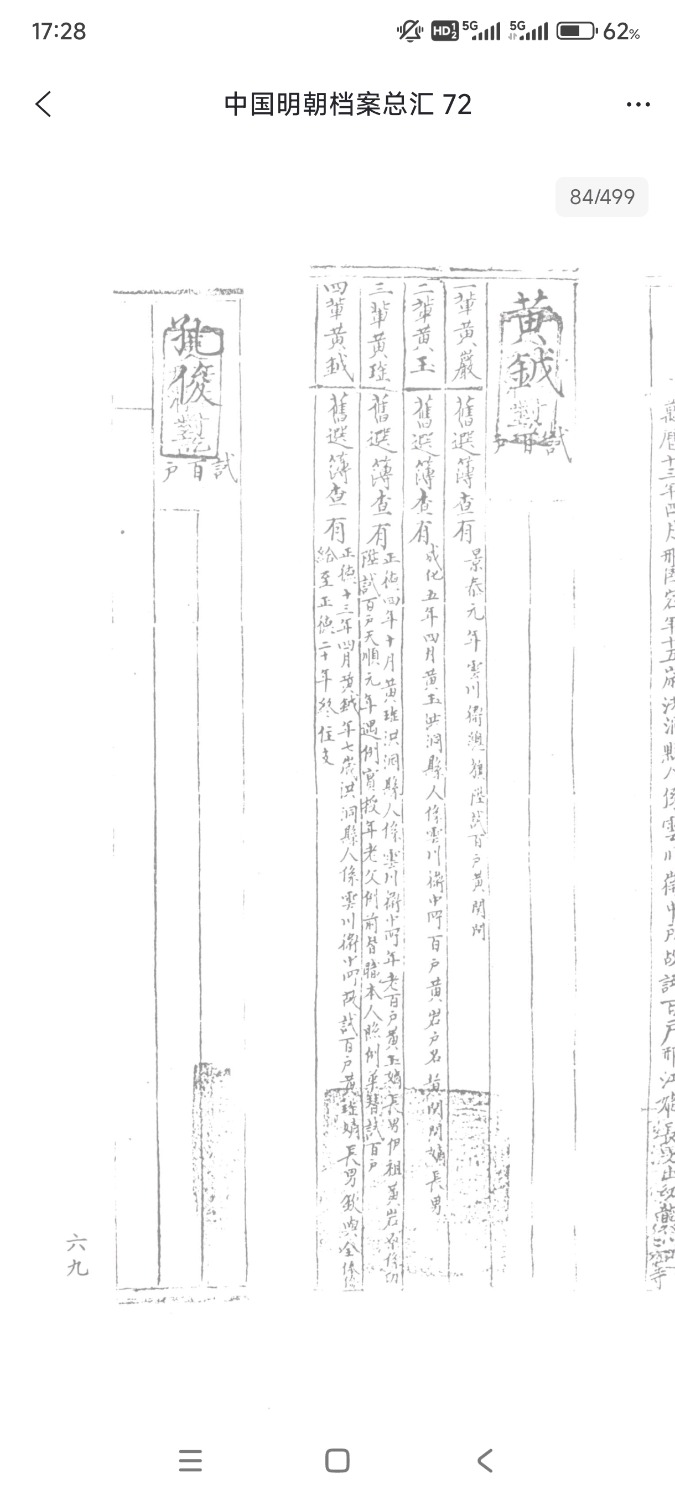 17:28
HD 1 2 5G 5G 62%
中国明朝档案总汇 72
84/499
萬曆十三年四月邢
年十五歲洪洞縣人係雲川衛中所故試百戶邢江嫡長男
黃鉞
試百戶
一輩黃巖
舊選簿查有
景泰元年雲川衛總旗陞試百戶黃閏閏
二輩黃玉
舊選簿查有
成化五年四月黃玉洪洞縣人係雲川衛中所百戶黃岩戶名黃閏閏嫡長男
三輩黃瑄
舊選簿查有
正德四年十月黃瑄洪洞縣人係雲川衛中所年老百戶黃玉嫡長男伊祖黃岩
陞試百戶天順元年遇例實授年老父例前替職本人照例革替試百戶
四輩黃鉞
舊選簿查有
正德十三年四月黃鉞年七歲洪洞縣人係雲川衛中所故試百戶黃瑄嫡長男欽與全俸優
給至正德二十年終住支
俊
試百戶
六九